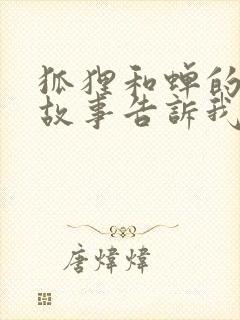 狐狸和蝉的
故事告訴我
唐煒煒